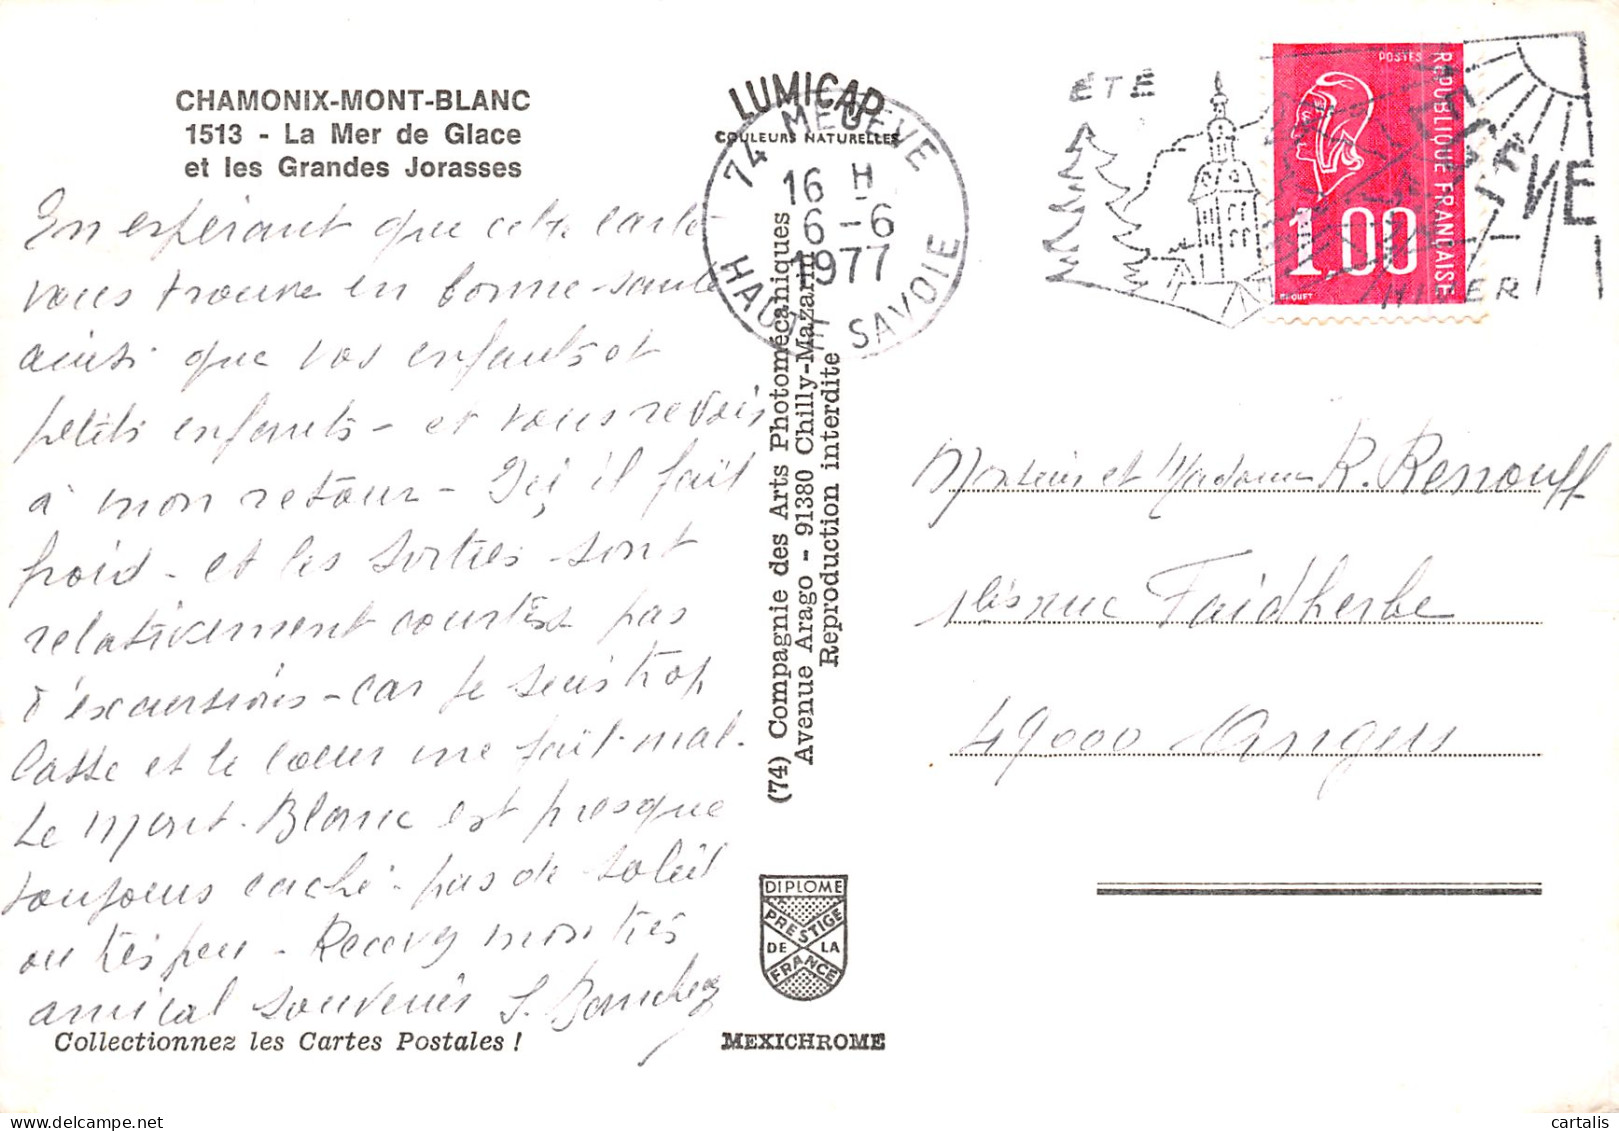 CHAMONIX-MONT-BLANC
1513 - La Mer de Glace
et les Grandes Jorasses
En espérant que cette carte
vous trouve en bonne santé
ainsi que vos enfants et
petits enfants - et vous revois
à mon retour - Ici il fait
froid - et les sorties sont
relativement courtes pas
d'excursions - car je suis trop
lasse et le coeur me fait mal.
Le Mont-Blanc est presque
toujours caché - pas de soleil
ou très peu - Recevez mon très
amical souvenir S.
Collectionnez les Cartes Postales !
LUMICAP
COULEURS NATURELLES
74 MEGEVE
16 H
6-6
1977
HAUTE SAVOIE
(74) Compagnie des Arts Photomécaniques
Avenue Arago - 91380 Chilly-Mazarin
Reproduction interdite
DIPLOME
PRESTIGE
DE LA
FRANCE
MEXICHROME
ETE
MEGEVE
HIVER
POSTES
REPUBLIQUE FRANÇAISE
1,00
BEQUET
Monsieur et Madame R. Renouff
1 bis rue Faidherbe
49000 Angers
cartalis